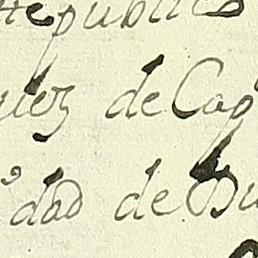 Republica
uez de Cap
dad de Bu